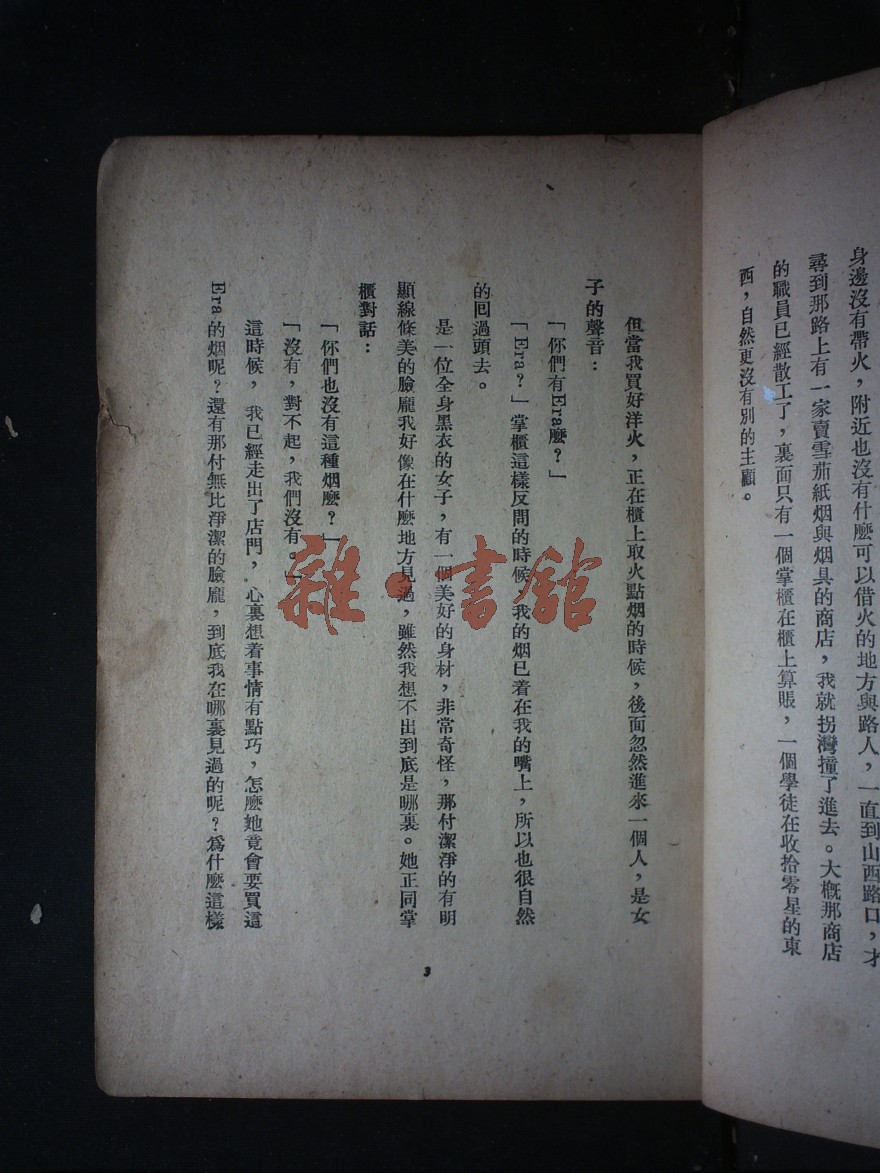 身邊沒有帶火，附近也沒有什麽可以借火的地方與路人，一直到山西路口，才
尋到那路上有一家賣雪茄紙烟與烟具的商店，我就拐灣撞了進去。大槪那商店
的職員已經散工了，裏面只有一個掌櫃在櫃上算賬，一個學徒在收拾零星的東
西，自然更沒有別的主顧。
但當我買好洋火，正在櫃上取火點烟的時候，後面忽然進來一個人，是女
子的聲音：
「你們有Era麽？」
「Era？」掌櫃這樣反問的時候，我的烟已着在我的嘴上，所以也很自然
的囘過頭去。
是一位全身黑衣的女子，有一個美好的身材，非常奇怪，那付潔淨的有明
顯線條美的臉龐我好像在什麽地方見過，雖然我想不出到底是哪裏。她正同掌
櫃對話：
「你們也沒有這種烟麽？」
「沒有，對不起，我們沒有。」
這時候，我已經走出了店門，心裏想着事情有點巧，怎麽她竟會要買這
Era 的烟呢？還有那付無比淨潔的臉龐，到底我在哪裏見過的呢？爲什麽這樣
3
雜·書館